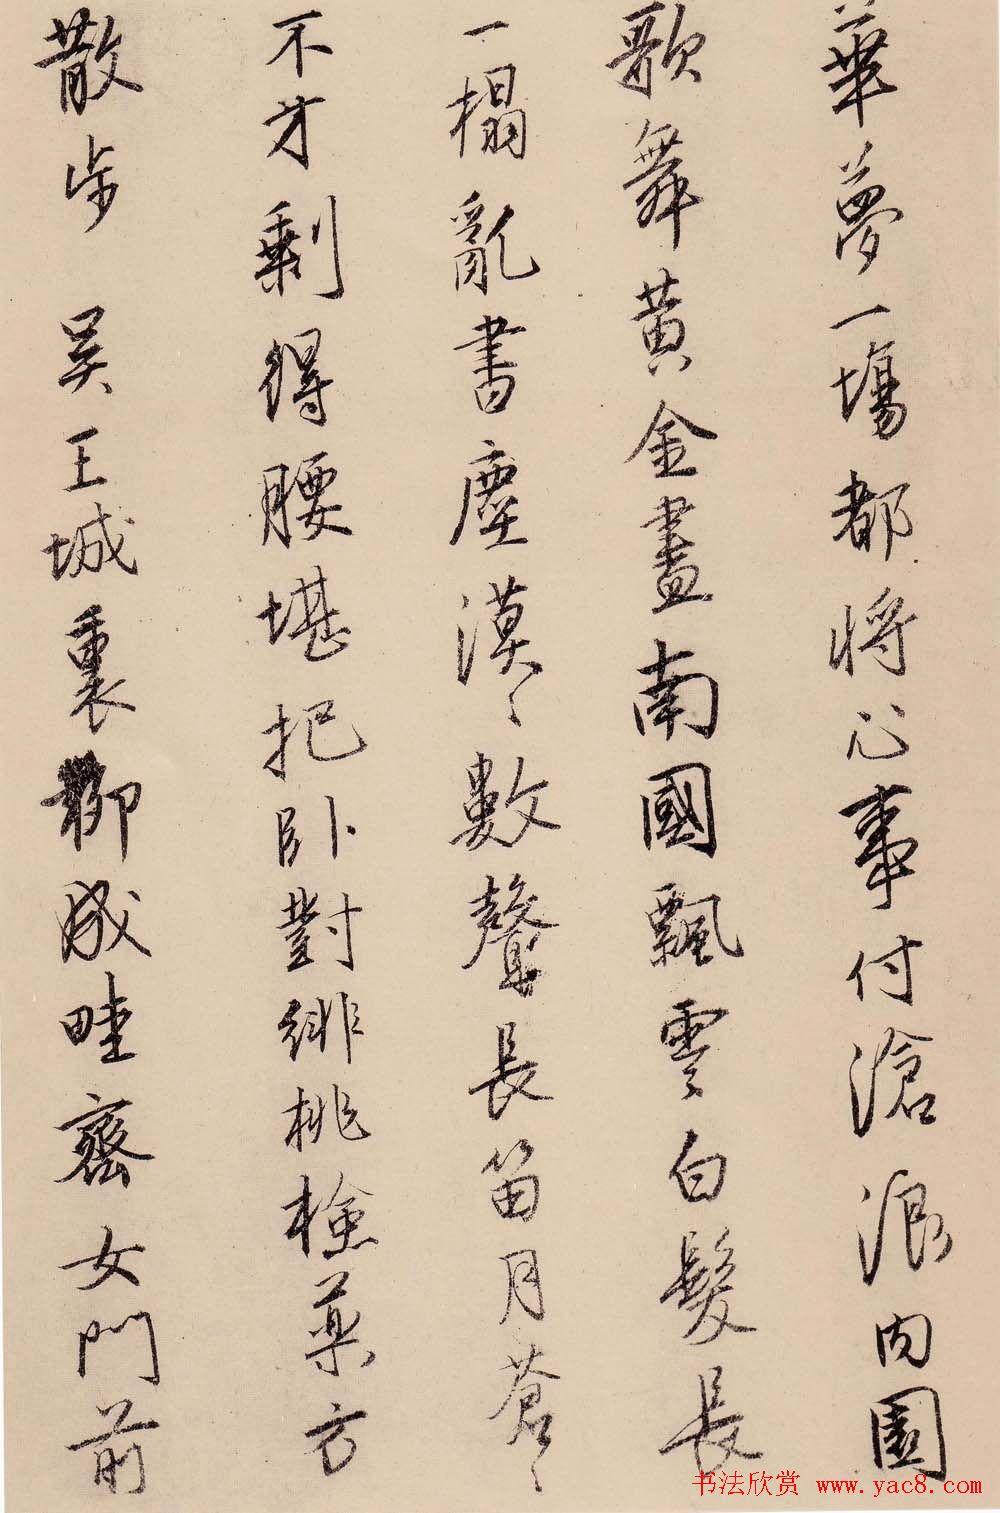 華夢一場都將心事付滄浪內園
歌舞黃金盡南國飄零白髮長
一榻亂書塵漠〻數聲長笛月蒼〻
不才剩得腰堪把臥對緋桃檢藥方
散步 吳王城裏柳成畦齊女門前
书法欣赏 www.yac8.com